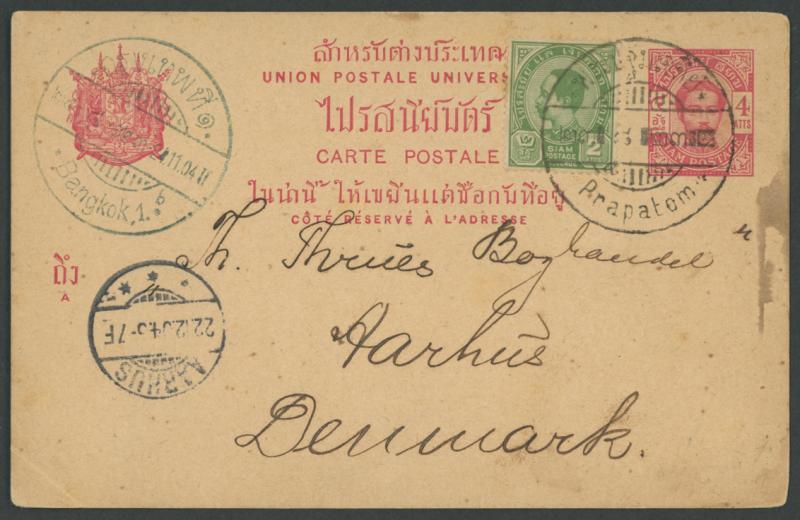 สำหรับต่างประเทศ
UNION POSTALE UNIVER
ไปรสนียบัตร์
CARTE POSTALE
ใบน่านี้ ให้เขียนแต่ชื่อกับที่อยู่
CÔTÉ RÉSERVÉ À L'ADRESSE
ถึง
A
SIAM
POSTAGE
2
4
ATTS
SIAM POSTAGE
11.04
Bangkok,1.
Prapatom
Th. Thrues Boghandel
Aarhus
Denmark.
22.12.04.5-7F
AARHUS